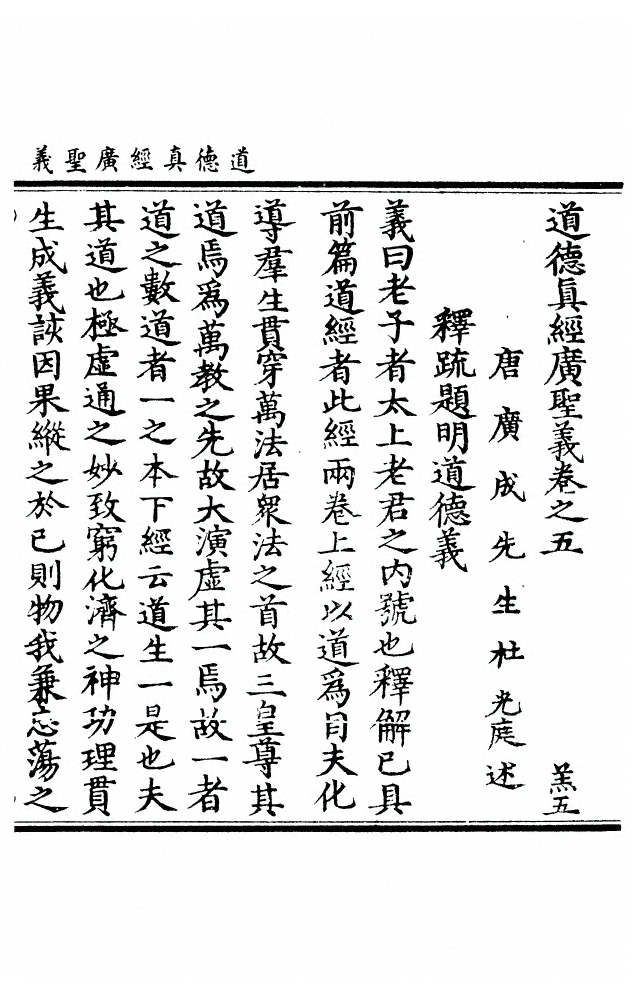 道德真經廣聖義
道德眞經廣聖義卷之五
羔五
唐廣成先生杜光庭述
釋疏題明道德義
義曰老子者太上老君之内號也釋解已具
前篇道經者此經兩卷上經以道爲目夫化
導羣生貫穿萬法居衆法之首故三皇尊其
道焉爲萬教之先故大演虛其一焉故一者
道之數道者一之本下經云道生一是也夫
其道也極虛通之妙致窮化濟之神功理貫
生成義該因果縱之於已則物我兼忘蕩之